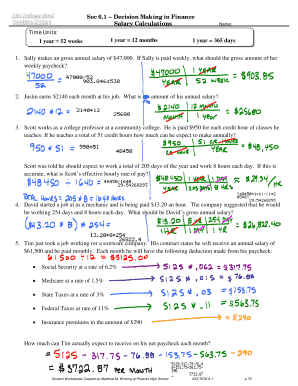 Sec 6.1 – Decision Making in Finance
Salary Calculations
Name:
Time Units:
1 year = 52 weeks 1 year = 12 months 1 year = 365 days
1. Sally makes an gross annual salary of $47,000. If Sally is paid weekly, what should the gross amount of her
weekly paycheck?
47000/52
903.8461538
$47000 1 YEAR = $903.85
47000
52
2. Justin earns $2140 each month at his job. What is amount of his annual salary?
2140 * 12 = 2140*12
25680
$2140 12 MONTH = $25680
3. Scott works as a college professor at a community college. He is paid $950 for each credit hour of classes he
teaches. If he teaches a total of 51 credit hours how much can he expect to make annually?
950 * 51 = 950*51
48450
$950 51 CR HOURS = $48,450
Scott was told he should expect to work a total of 205 days of the year and work 8 hours each day. If this is
accurate, what is Scott's effective hourly rate of pay?
$48450 ÷ 1640 =
29.54268293
$48450 1 YEAR 1 DAY ≈ $29.54/HR
TOTAL HOURS = 205 * 8 = 1640 HOURS
4. David started a job as a mechanic and is being paid $13.20 an hour. The company suggested that he would
be working 254 days and 8 hours each day. What should David's gross annual salary?
(13.20 * 8) * 254 =
13.20*8*254
26822.4
$13.20 8 HR 254 DAY = $26,822.40
5. Tim just took a job working for a software company. His contract states he will receive an annual salary of
$61,500 and be paid monthly. Each month he will have the following deduction made from his paycheck:
61500 ÷ 12 = $5125.00
• Social Security at a rate of 6.2% 5125 * .062 = $317.75
• Medicare at a rate of 1.5% 5125 * .015 = $76.88
• State Taxes at a rate of 3% 5125 * .03 = $153.75
• Federal Taxes at a rate of 11% 5125 * .11 = $563.75
• Insurance premiums in the amount of $290 = $290
How much can Tim actually expect to receive on his net paycheck each month?
= 5125 - 317.75 - 76.88 - 153.75 - 563.75 - 290
= $3722.87 PER MONTH
SECTION 6-1